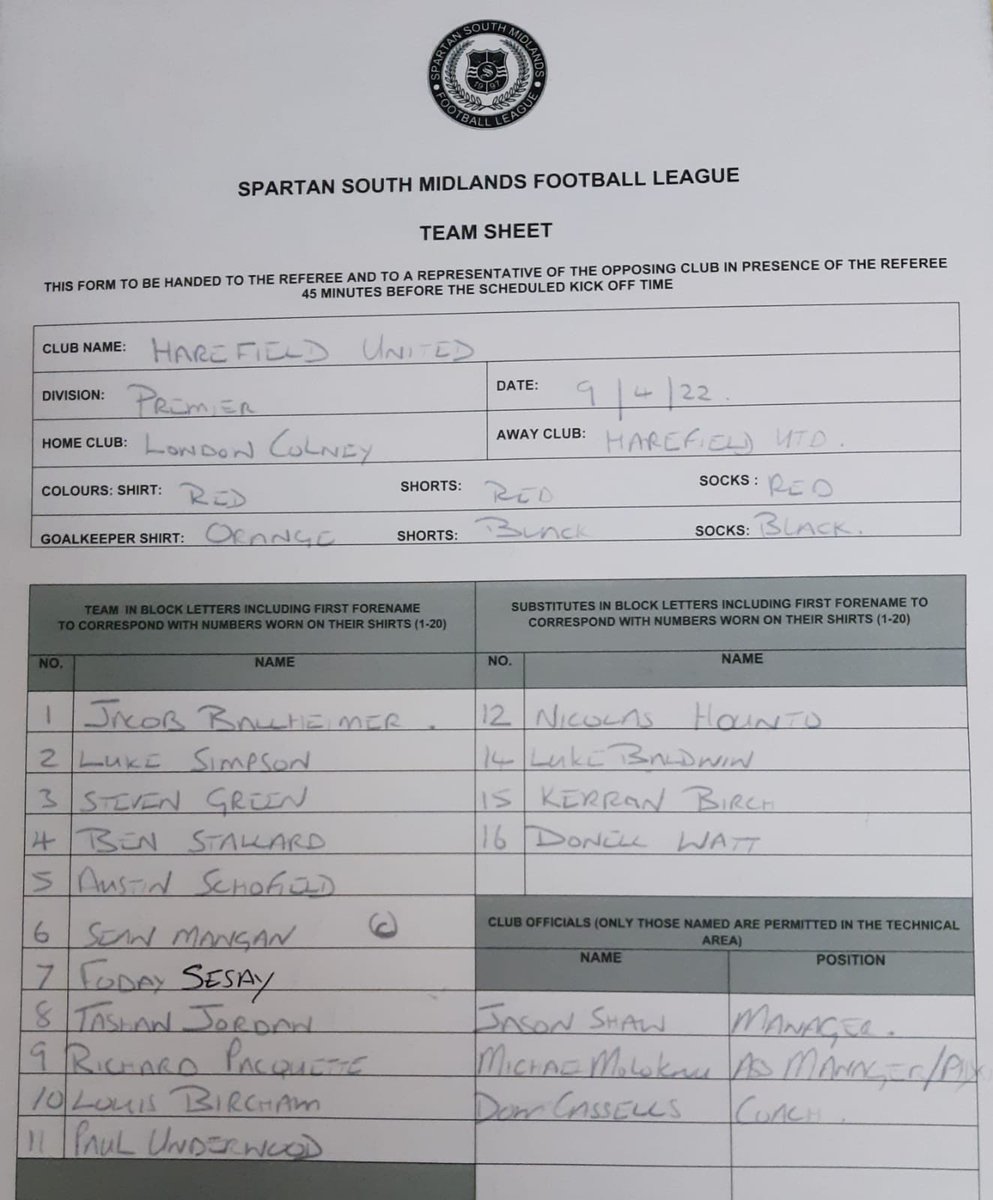 SPARTAN SOUTH MIDLANDS
FOOTBALL LEAGUE
S
1997
SPARTAN SOUTH MIDLANDS FOOTBALL LEAGUE
TEAM SHEET
THIS FORM TO BE HANDED TO THE REFEREE AND TO A REPRESENTATIVE OF THE OPPOSING CLUB IN PRESENCE OF THE REFEREE
45 MINUTES BEFORE THE SCHEDULED KICK OFF TIME
CLUB NAME: HAREFIELD UNITED
DIVISION: PREMIER DATE: 9/4/22.
HOME CLUB: LONDON COLNEY AWAY CLUB: HAREFIELD UTD.
COLOURS: SHIRT: RED SHORTS: RED SOCKS : RED
GOALKEEPER SHIRT: ORANGE SHORTS: BLACK SOCKS: BLACK.
TEAM IN BLOCK LETTERS INCLUDING FIRST FORENAME
TO CORRESPOND WITH NUMBERS WORN ON THEIR SHIRTS (1-20)
SUBSTITUTES IN BLOCK LETTERS INCLUDING FIRST FORENAME TO
CORRESPOND WITH NUMBERS WORN ON THEIR SHIRTS (1-20)
NO. NAME NO. NAME
1 JACOB BALLHEIMER. 12 NICOLAS HOUNTO
2 LUKE SIMPSON 14 LUKE BALDWIN
3 STEVEN GREEN 15 KERRAN BIRCH
4 BEN STALLARD 16 DONELL WATT
5 AUSTIN SCHOFIELD
6 SEAN MANGAN (C)
7 FODAY SESAY
8 TASHAN JORDAN
9 RICHARD PACQUETTE
10 LOUIS BIRCHAM
11 PAUL UNDERWOOD
CLUB OFFICIALS (ONLY THOSE NAMED ARE PERMITTED IN THE TECHNICAL
AREA)
NAME POSITION
JASON SHAW MANAGER.
MICHAE ASS MANAGER/
DOM CASSELLS COACH.